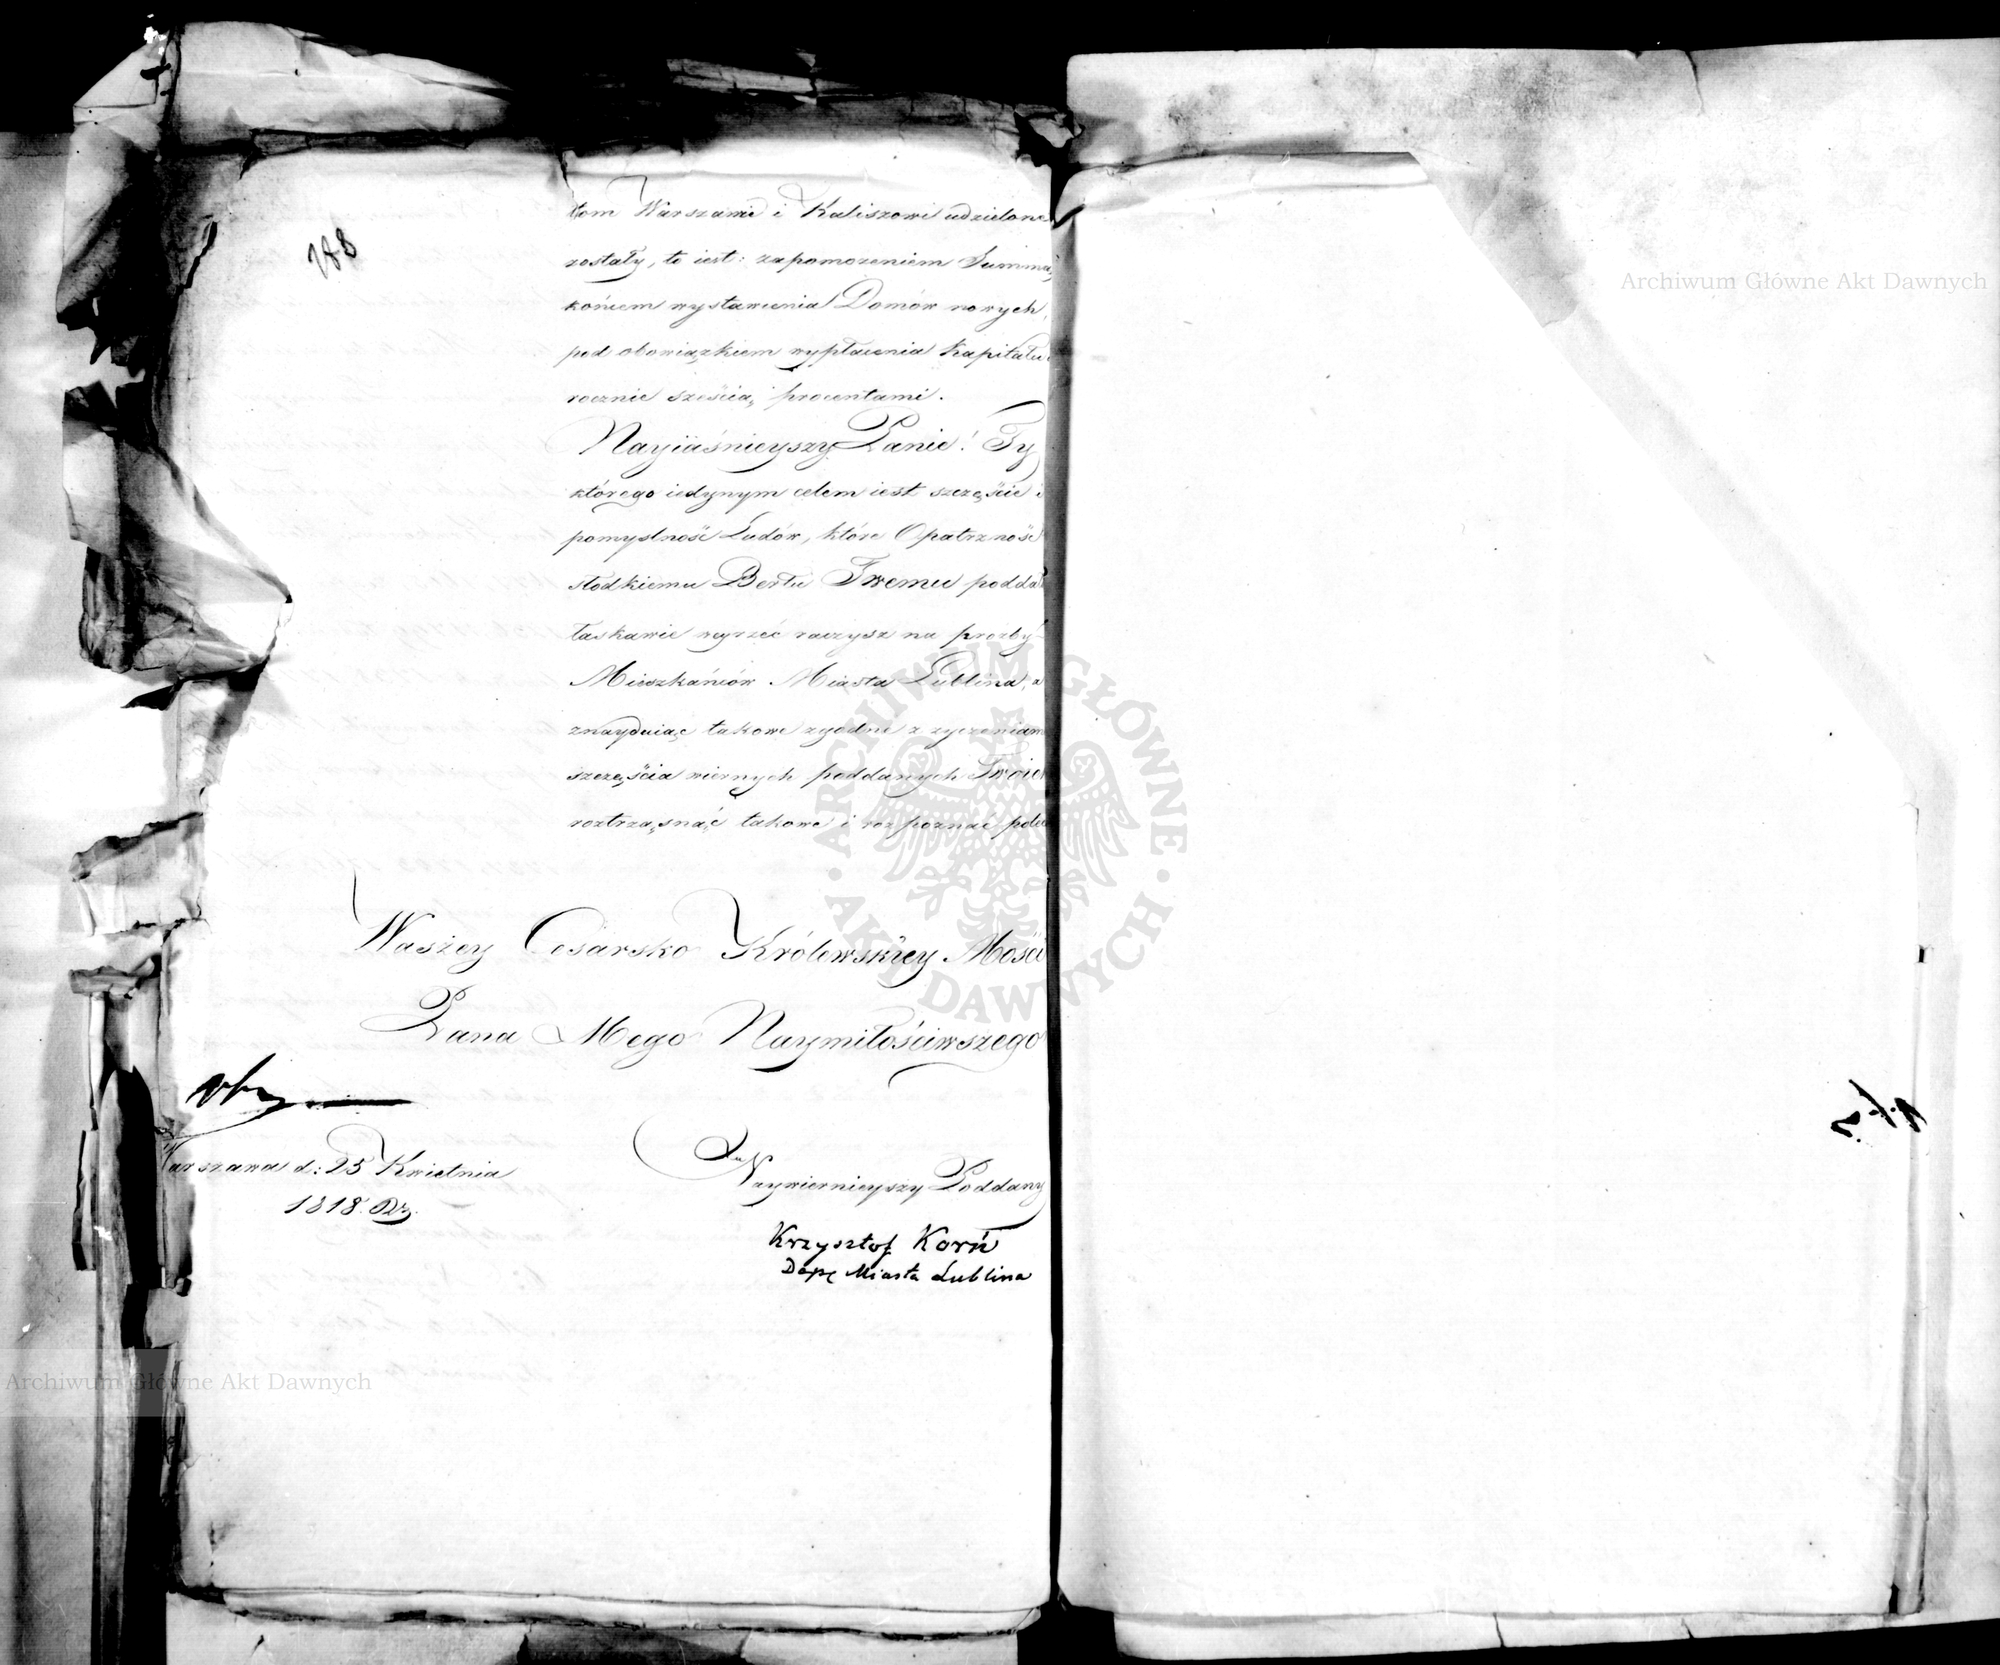 188
tom Warszawie i Kaliszowi udzielone
zostały, to iest: zapomożeniem Summą
końcem wystawienia Domów nowych,
pod obowiązkiem wypłacenia Kapitału
rocznie sześcią procentami.
Nayiaśnieyszy Panie! Ty
którego iedynym celem iest szczęście i
pomyslność Ludów, które Opatrzność
słodkiemu Berłu Twemu poddał
łaskawie weyrzéć raczysz na prozby
Mieszkańców Miasta Lublina, a
znayduiąc takowe zgodne z życzeniam
szczęścia wiernych poddanych Twoich
roztrząsnąć takowe i rozpoznać polec
Waszey Cesarsko Królewskiey Mości
Pana Mego Naymiłościwszego
Warszawa d: 25 Kwietnia
1818.
Naywiernieyszy Poddany
Krzysztof Korń
Depę Miasta Lublina
Archiwum Główne Akt Dawnych
Archiwum Główne Akt Dawnych
ARCHIWUM GŁÓWNE AKT DAWNYCH